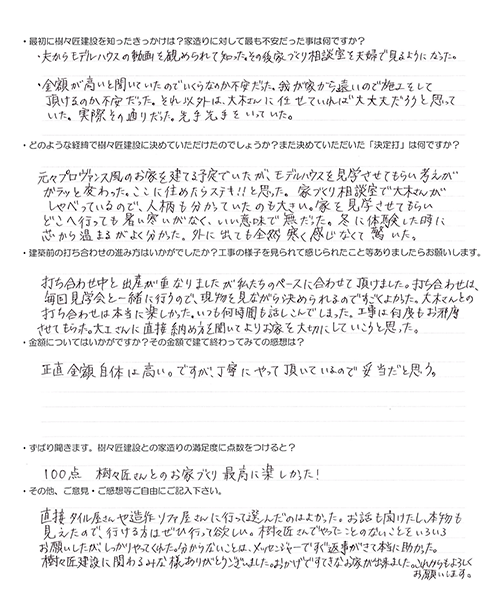 ・最初に樹々匠建設を知ったきっかけは？家造りに対して最も不安だった事は何ですか？
・夫からモデルハウスの動画を観められて知った。その後家づくり相談室を夫婦で見るようになった。
・金額が高いと聞いていたのでいくらなのか不安だった。我が家から遠いので施工をして
頂けるのか不安だった。それ以外は、大木さんに任せていれば大丈夫だろうと思って
いた。実際その通りだった。先手先手をいっていた。
・どのような経緯で樹々匠建設に決めていただけたのでしょうか？また決めていただいた「決定打」は何ですか？
元々プロヴァンス風のお家を建てる予定でいたが、モデルハウスを見学させてもらい考えが
ガラッと変わった。ここに住めたらステキ!!と思った。家づくり相談室で大木さんが
しゃべっているので、人柄も分かっていたのも大きい。家を見学させてもらら
どこへ行っても暑い寒いがなく、いい意味で無だった。冬に体験した時に
芯から温まるがよく分かった。外に出ても全然寒く感じなくて驚いた。
・建築前の打ち合わせの進み方はいかがでしたか？工事の様子を見れて感じられたこと等ありましたらお願いします。
打ち合わせ中と出産が重なりましたが私たちのペースに合わせて頂けました。打ち合わせは、
毎回見学会と一緒に行うので、現物を見ながら決められるのですごくよかった。大木さんとの
打ち合わせは本当に楽しかった。いつも何時間も話しこんでしまった。工事は何度もお邪魔
させてもらい、大工さんに直接納め方を聞いてよりお家を大切にしていこうと思った。
・金額についてはいかがですか？その金額で建て終わってみての感想は？
正直金額自体は高い。ですが、丁寧にやって頂いているので妥当だと思う。
・ずばり聞きます。樹々匠建設との家造りの満足度に点数をつけると？
100点 樹々匠さんとのお家づくり最高に楽しかった！
・その他、ご意見・ご感想等ご自由にご記入下さい。
直接タイル屋さんや造作ソファ屋さんに行って選んだのはよかった。お話も聞けたし、本物も
見えたので、行ける方はぜひ行って欲しい。樹々匠さんでやったことのないことをいろいろ
お願いしたが、しっかりやってくれた。分からないことは、メッセンジャーですぐ返事がきて本当に助かった。
樹々匠建設に関わるみな様ありがとうございました。おかげですてきなお家が出来ました。これからもよろしく
お願いします。